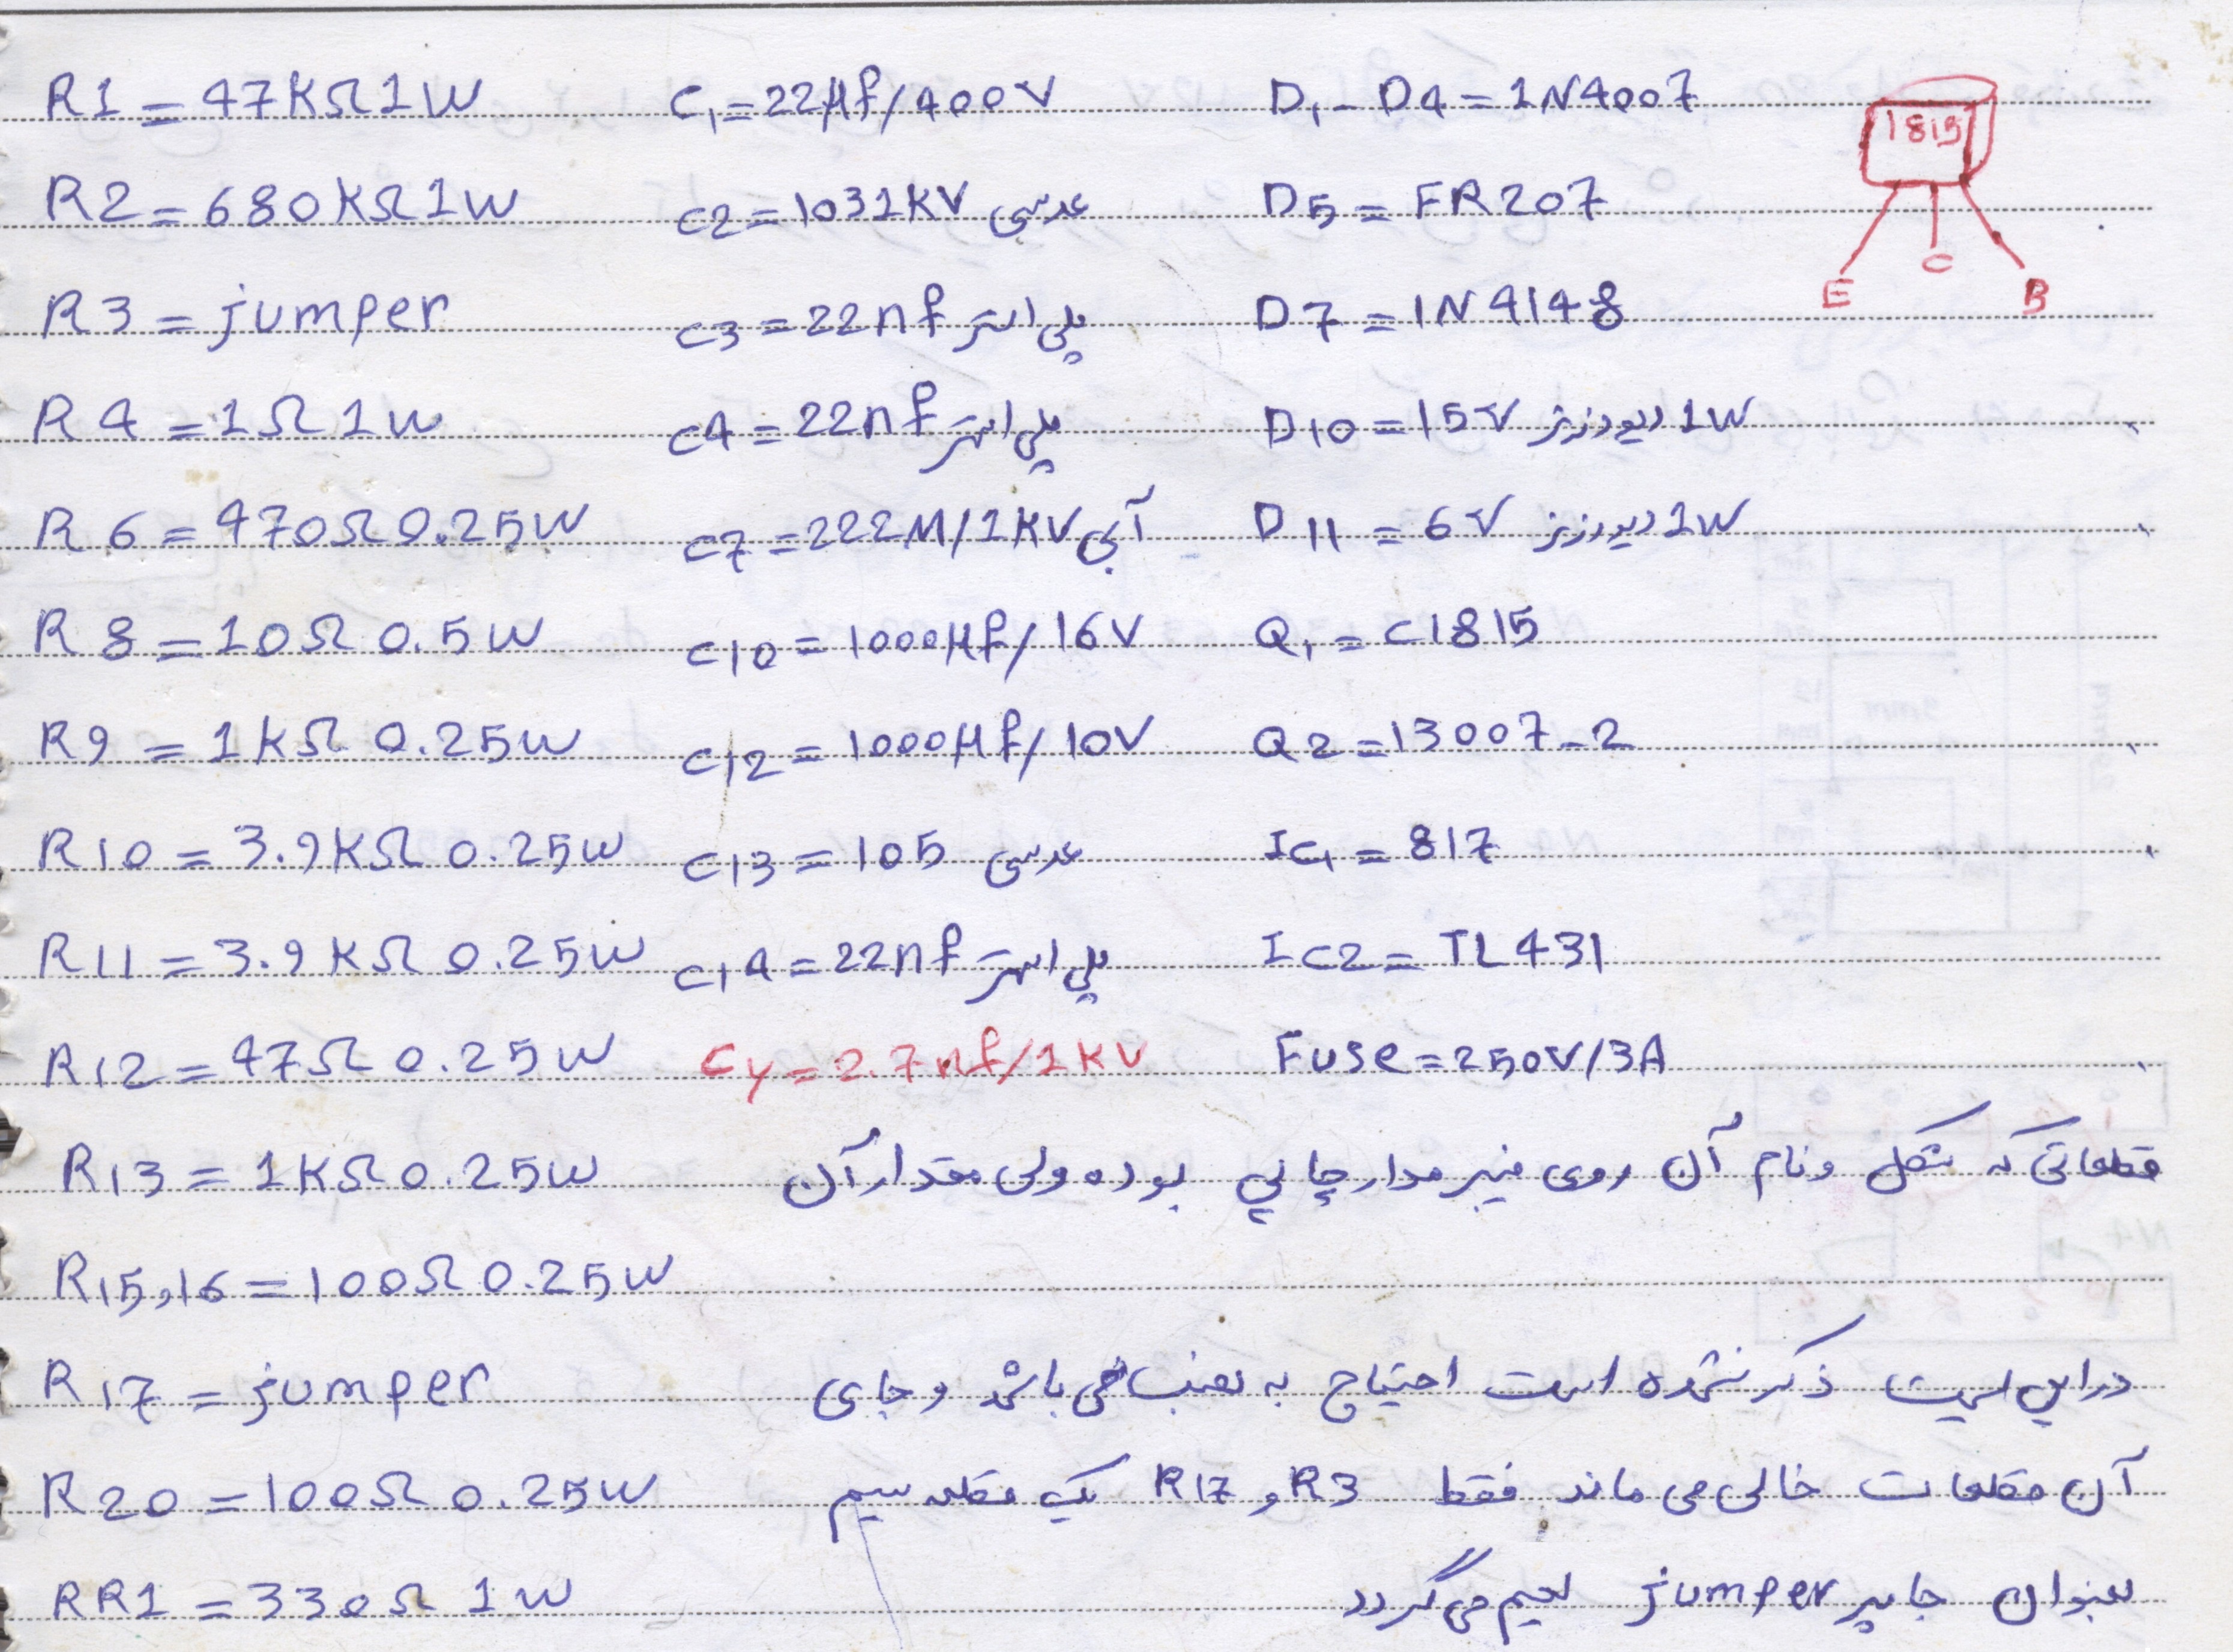 R1 = 47KΩ1W C1=22μf/400V D1-D4=1N4007
1815
R2=680KΩ1W C2=1031KV عدسی D5=FR207
E C B
R3=jumper C3=22nf پلی استر D7=1N4148
R4=1Ω1W C4=22nf پلی استر D10=15V دیود زنر 1W
R6=470Ω0.25W C7=222M/1KV آبی D11=6V دیود زنر 1W
R8=10Ω 0.5W C10=1000μf/16V Q1=C1815
R9=1KΩ 0.25W C12=1000μf/10V Q2=13007-2
R10=3.9KΩ 0.25W C13=105 عدسی IC1=817
R11=3.9KΩ 0.25W C14=22nf پلی استر IC2=TL431
R12=47Ω 0.25W Cy=2.7nf/1KV Fuse=250V/3A
R13=1KΩ0.25W قطعاتی که شکل و نام آن روی فیبر مدار چاپی بوده ولی مقدار آن
R15,16=100Ω0.25W
R17=jumper در این لیست ذکر نشده است احتیاج به نصب نمی باشد و جای
R20=100Ω 0.25W آن قطعات خالی می ماند فقط R3 و R17 یک قطعه سیم
RR1=330Ω 1W بعنوان جامپر jumper لحیم می گردد